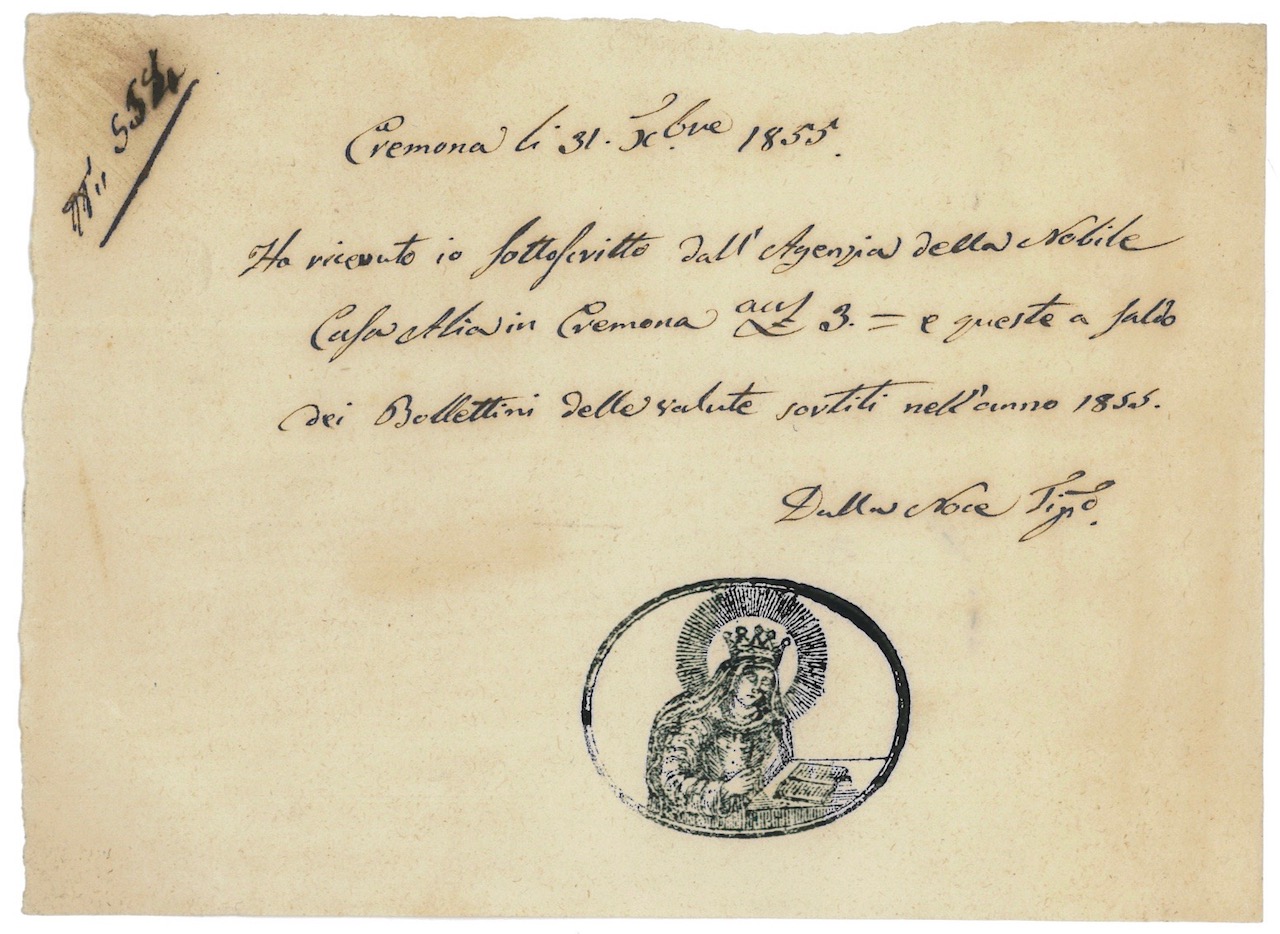 N.° 554
Cremona li 31. Xbre 1855.
Ho ricevuto io sottoscritto dall'Agenzia della Nobile
Casa Alia in Cremona aus£ 3. = e queste a saldo
dei Bollettini delle valute sortiti nell'anno 1855.
Dalla Noce Tipo.